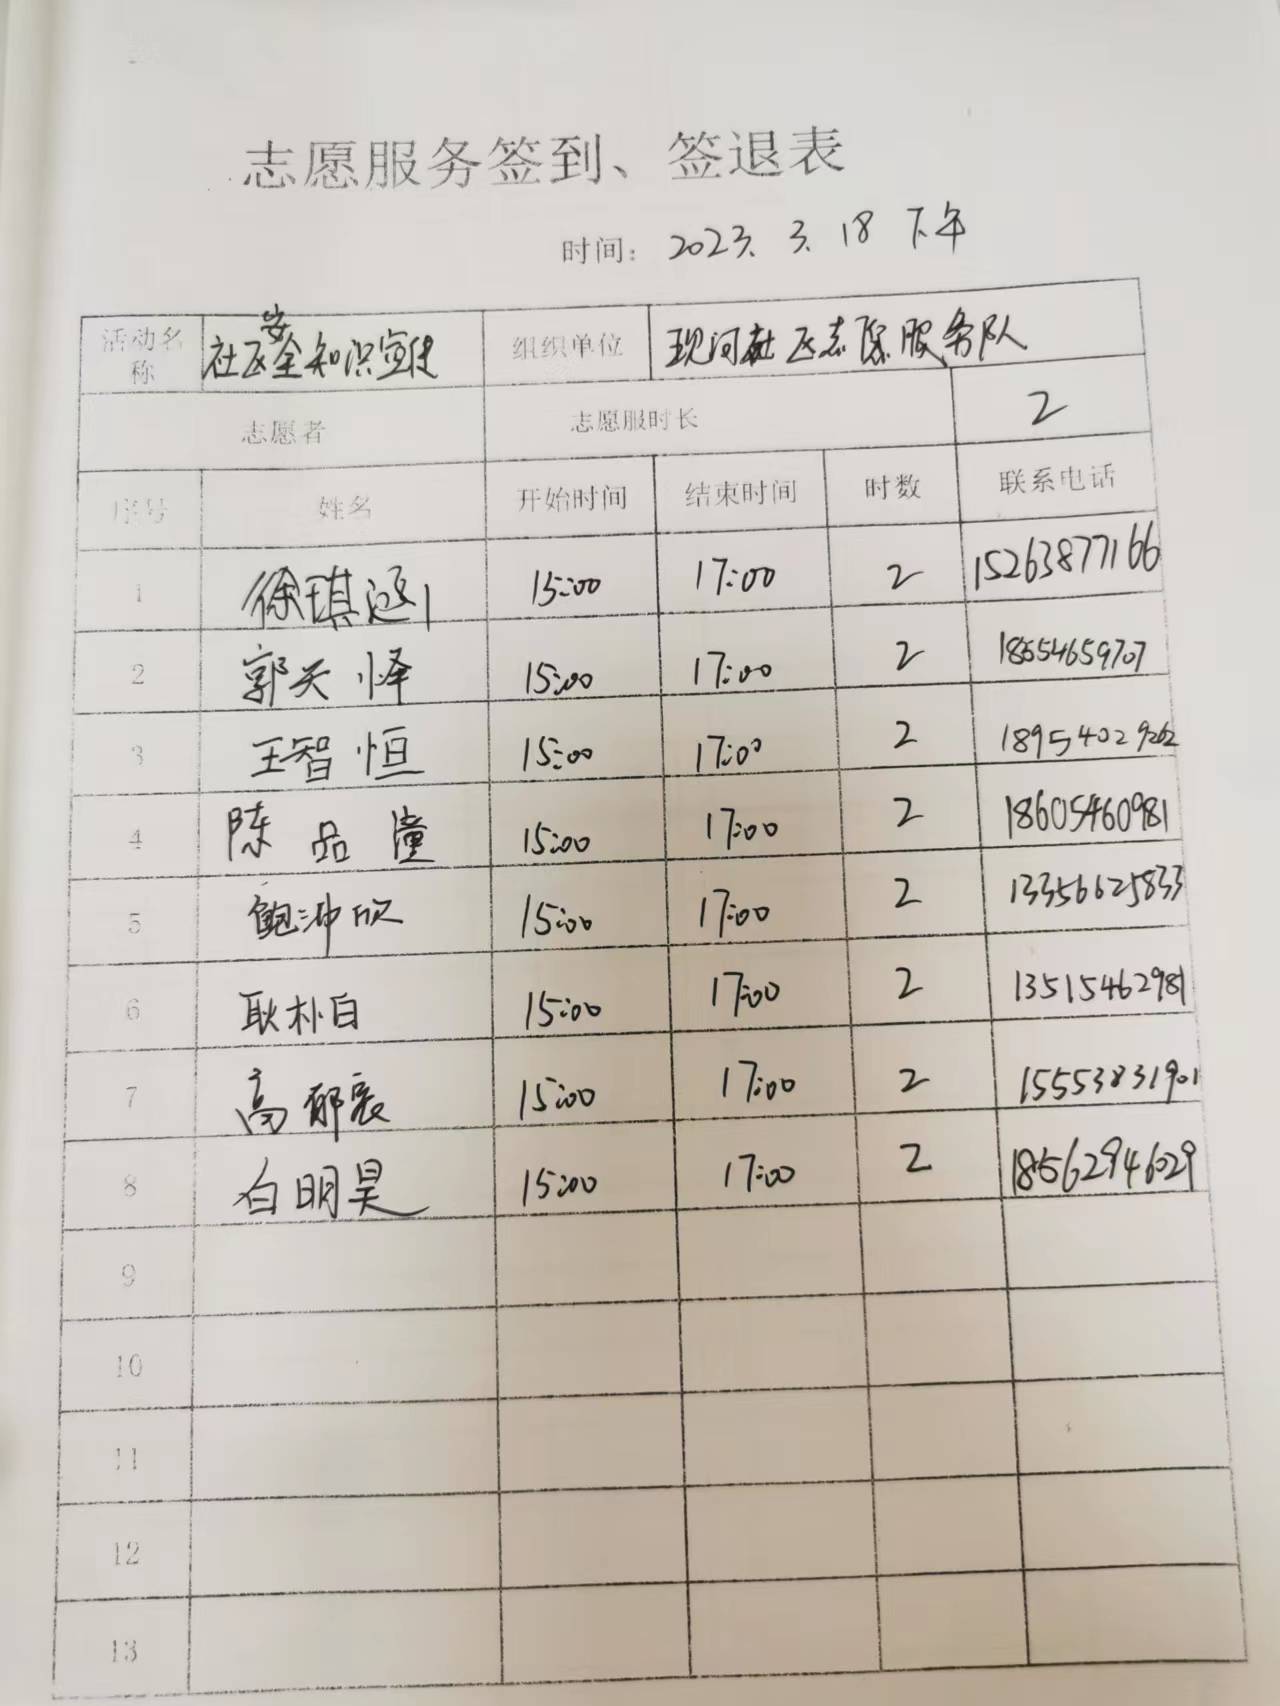 志愿服务签到、签退表
时间：2023. 3. 18 下午
活动名称 社区安全知识宣传 组织单位 现河社区志愿服务队
志愿者 志愿服时长 2
序号 姓名 开始时间 结束时间 时数 联系电话
1 徐琪涵 15:00 17:00 2 15263877166
2 郭天怿 15:00 17:00 2 18554659707
3 王智恒 15:00 17:00 2 18954029262
4 陈品潼 15:00 17:00 2 18605460981
5 鲍冲欣 15:00 17:00 2 13356625833
6 耿朴白 15:00 17:00 2 13515462981
7 高郁宸 15:00 17:00 2 15553831901
8 白明昊 15:00 17:00 2 18562946029
9
10
11
12
13